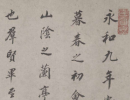 永和九年
暮春之初會
山陰之蘭亭
也羣賢畢至